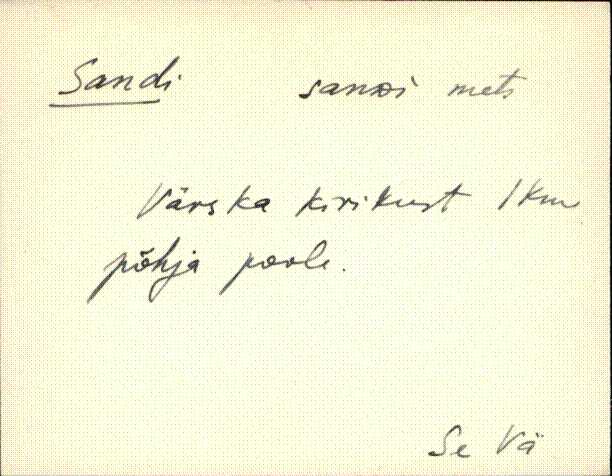 Sandi sanDi mets
Värska kirikust 1 km
põhja poole.
Se Vä